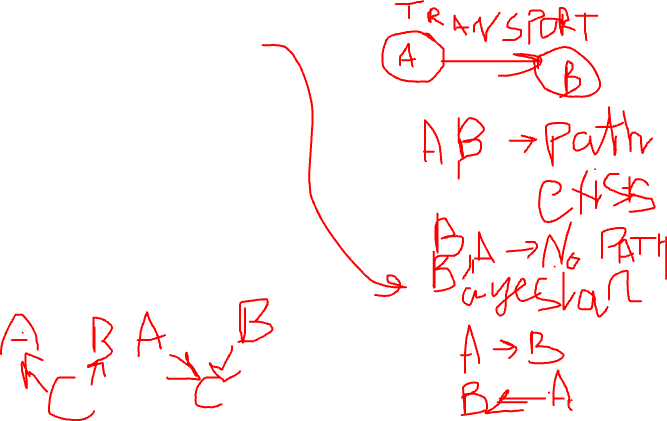 TRANSPORT
A → B
AB → path
exists
BA → No PATH
Bayesian
A → B
B ← A
A B A B
C C